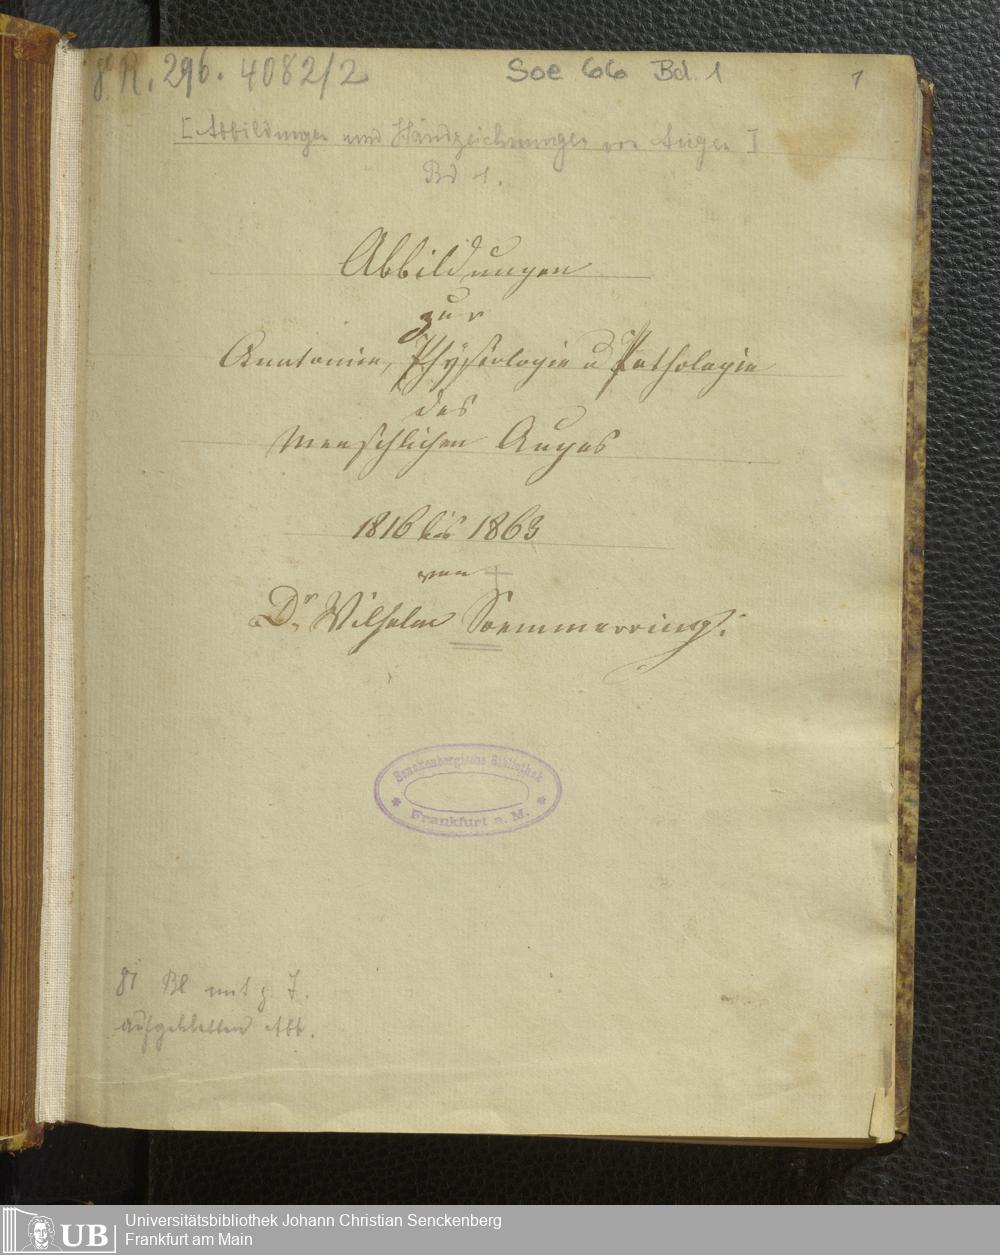 8° R. 296. 4082/2
Soe 66 Bd. 1
1
[Abbildungen und Handzeichnungen von Augen]
Bd 1.
Abbildungen
zur
Anatomie, Physiologie u Pathologie
des
Menschlichen Auges
1816 bis 1863
von
Dr. Wilhelm Soemmerring.
Senckenbergische Bibliothek
Frankfurt a. M.
81 Bl mit z. T.
aufgeklebten Abb.
UB
Universitätsbibliothek Johann Christian Senckenberg
Frankfurt am Main